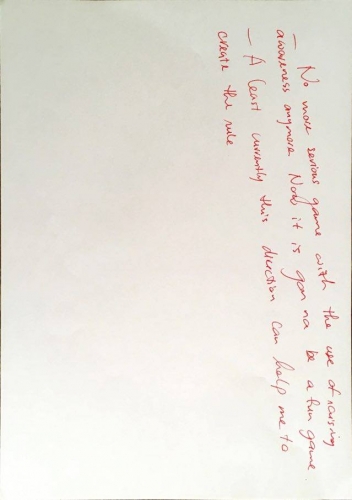 — No more serious game with the use of raising
awareness anymore Now it is gonna be a fun game
— A least currently this direction can help me to
create the rule